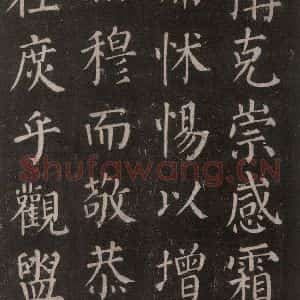 克崇感霜
怵惕以增
穆而敬恭
庶乎觀盥
Shufawang.CN